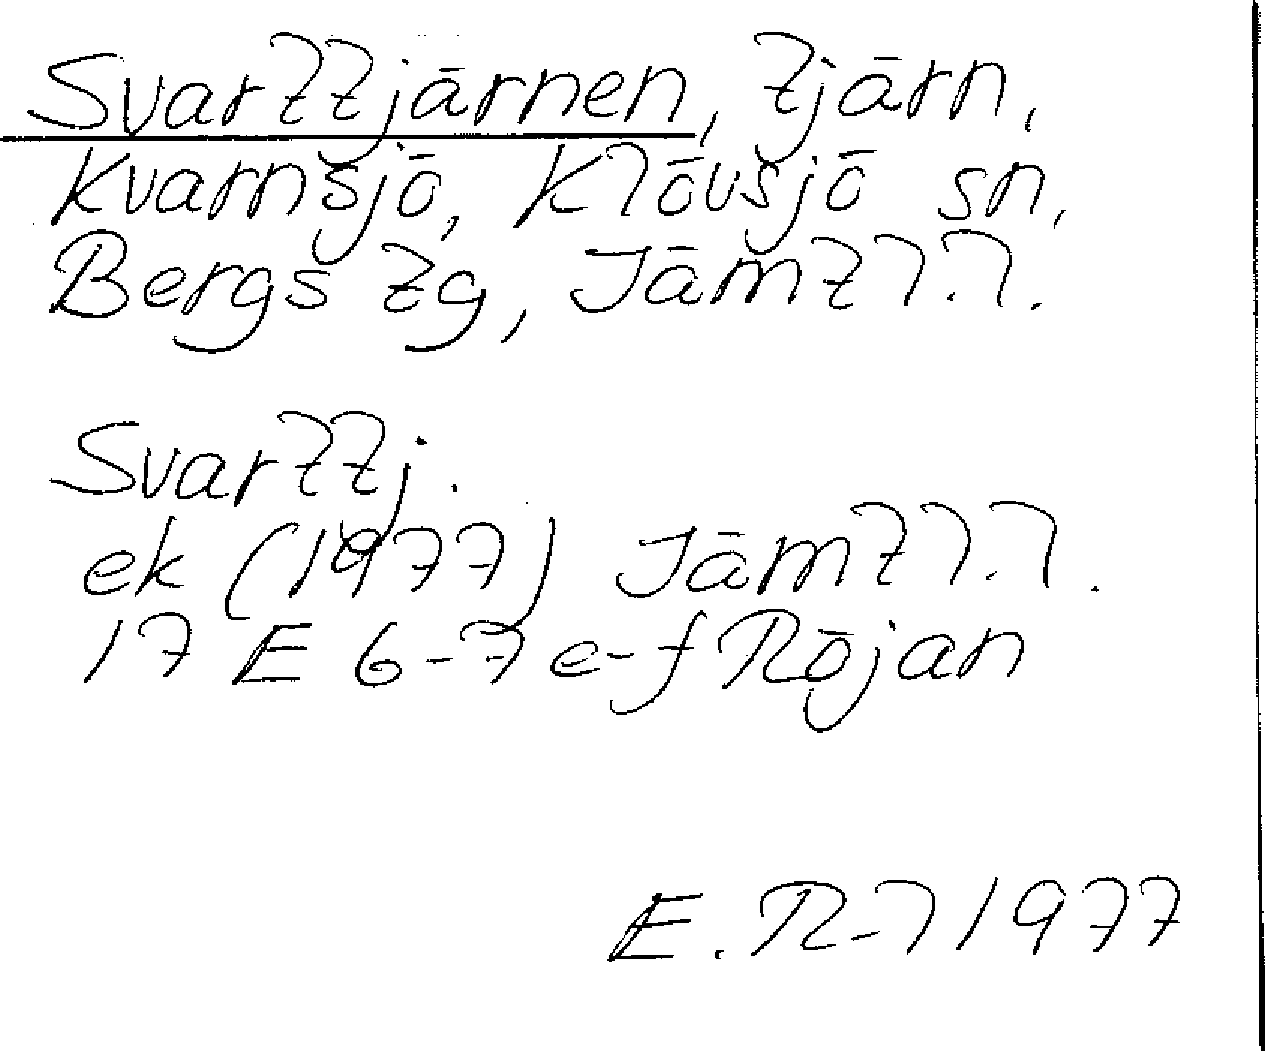 Svarttjärnen, tjärn,
Kvarnsjö, Klövsjö sn,
Bergs tg, Jämtl.l.
Svarttj.
ek (1977) Jämtl.l.
17 E 6-7 e-f Röjan
E. R-l 1977